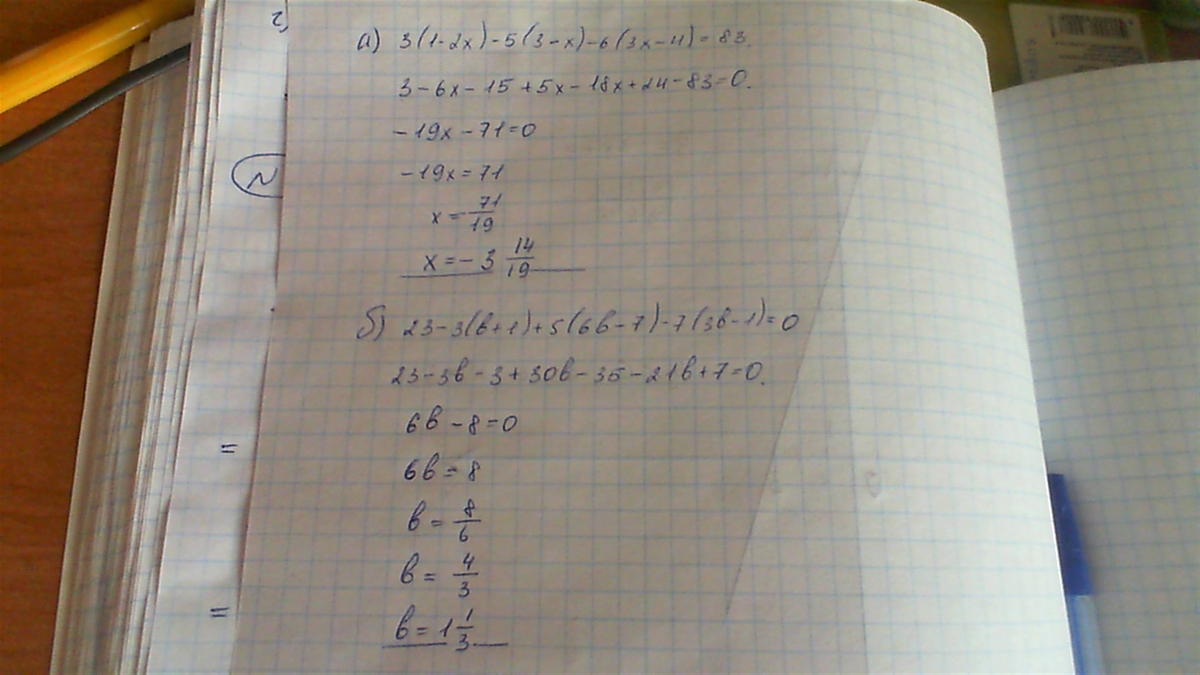 г)
а) 3(1-2x)-5(3-x)-6(3x-4)=83.
3-6x-15+5x-18x+24-83=0.
-19x-71=0
-19x=71
x=-71/19
x=-3 14/19
N
б) 23-3(в+1)+5(6в-7)-7(3в-1)=0
23-3в-3+30в-35-21в+7=0.
6в-8=0
=
6в=8
в=8/6
в=4/3
=
в=1 1/3